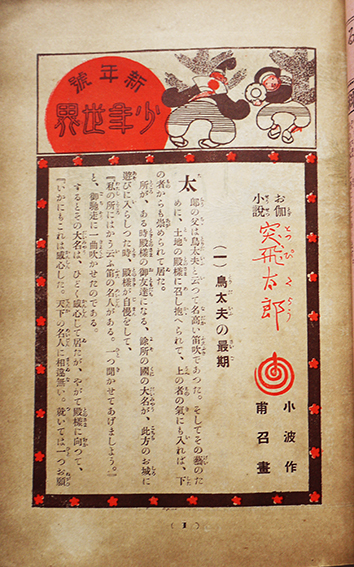 新年號
少年世界
お伽小說
突飛太郎
とっぴたらう
小波作
甫召畫
(一)鳥太夫の最期
太郎の父は鳥太夫と云つて名高い笛吹であつた。そしてその藝のた
めに、土地の殿樣に召し抱へられて、上の者の氣にも入れば、下
の者からも崇められて居た。
所が、ある時殿樣の御友達になる、餘所の國の大名が、此方のお城に
遊びに入らしつた時、殿樣が自慢をして、
『私の所にはかう云ふ笛の名人がある。一つ聞かせてあげましよう。』
と、御馳走に一曲吹かせたのである。
するとその大名は、ひどく感心して居たが、やがて殿樣に向つて、
『いかにもこれは感心した。天下の名人に相違無い。就いては一つお願
(1)